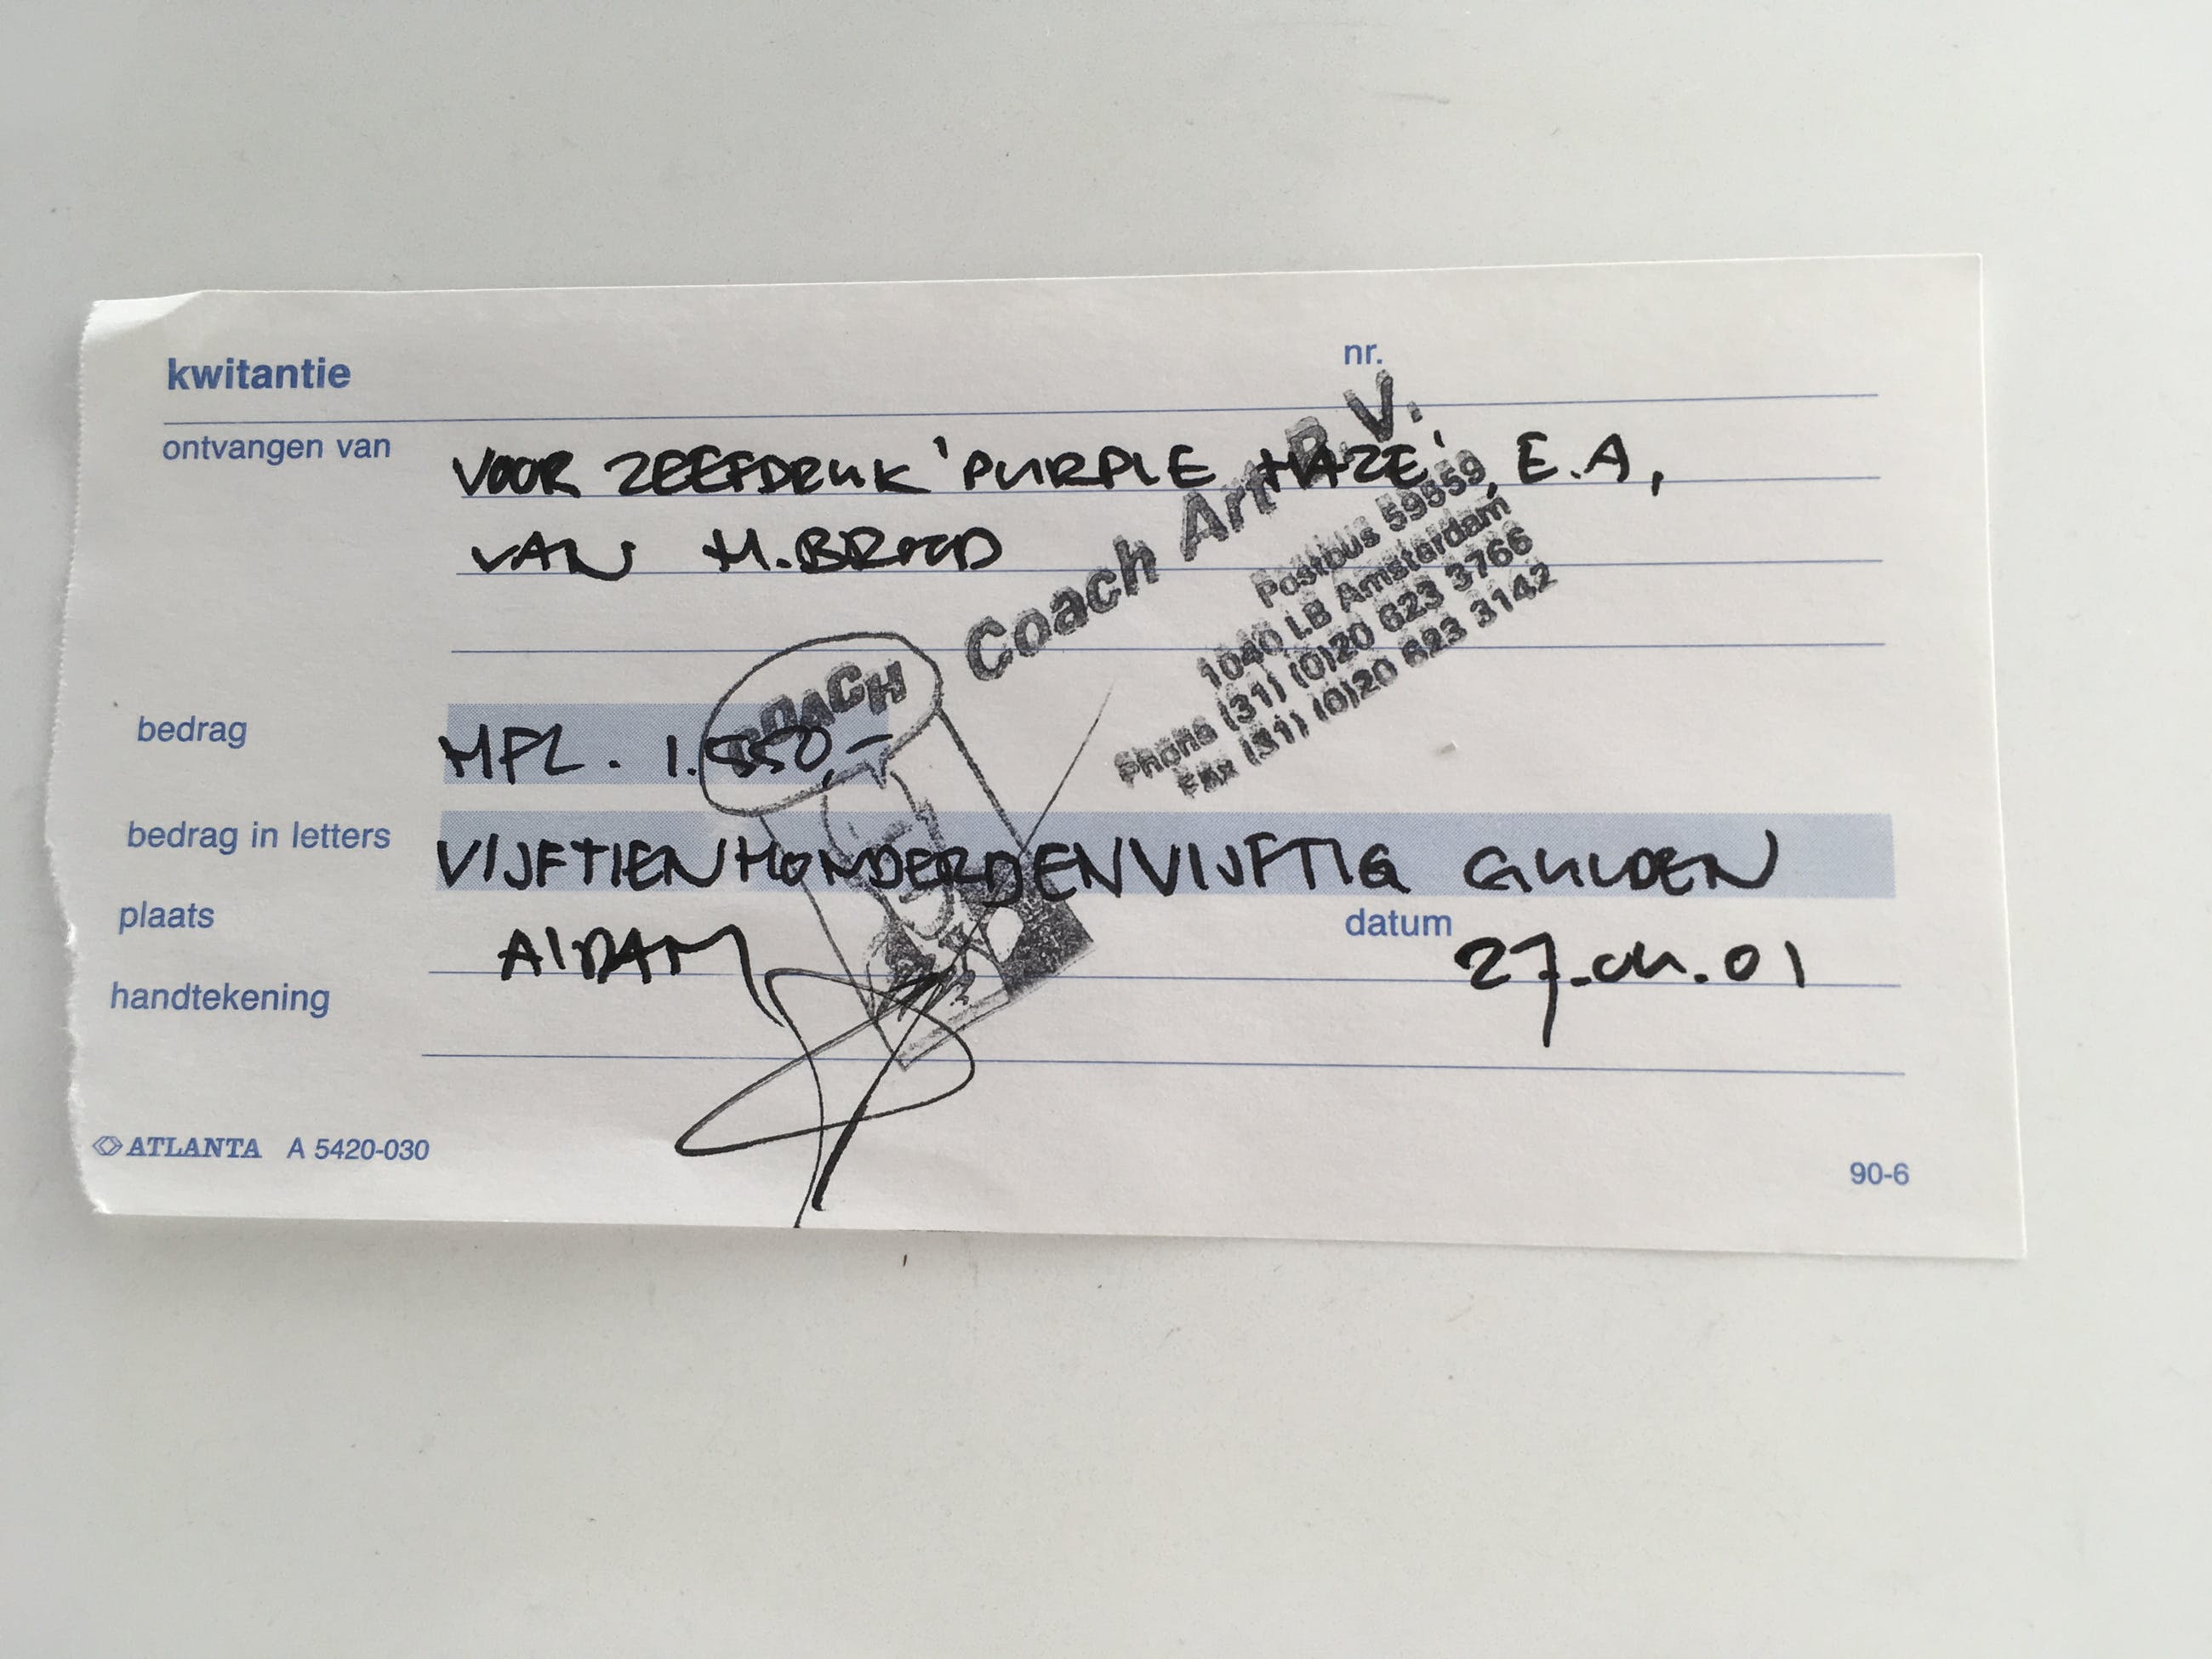 kwitantie
nr.
ontvangen van
VOOR ZEEFDRUK 'PURPLE HAZE', E.A,
VAN H.BROOD
bedrag
HFL. 1.550,-
bedrag in letters
VIJFTIENHONDERDENVIJFTIG GULDEN
plaats
A'DAM
datum
27.04.01
handtekening
COACH
Coach Art B.V.
Postbus 59559
1040 LB Amsterdam
Phone (31) (0)20 623 3766
Fax (31) (0)20 623 3142
ATLANTA A 5420-030
90-6